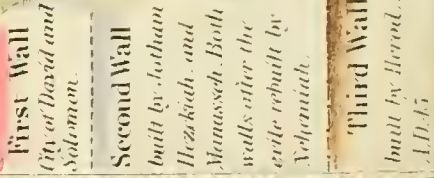 First Wall
City of David and
Solomon.
Second Wall
built by Jotham
Hezekiah. and
Manasseh. Both
walls after the
exile rebuilt by
Nehemiah.
Third Wall
built by Herod.
A.D. 45